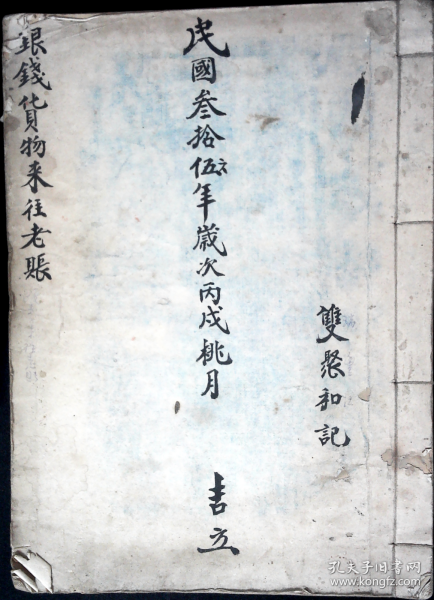 雙聚和記
民國叁拾伍六年歲次丙戌桃月 吉立
銀錢貨物来往老賬
孔夫子旧书网
kongfz.com